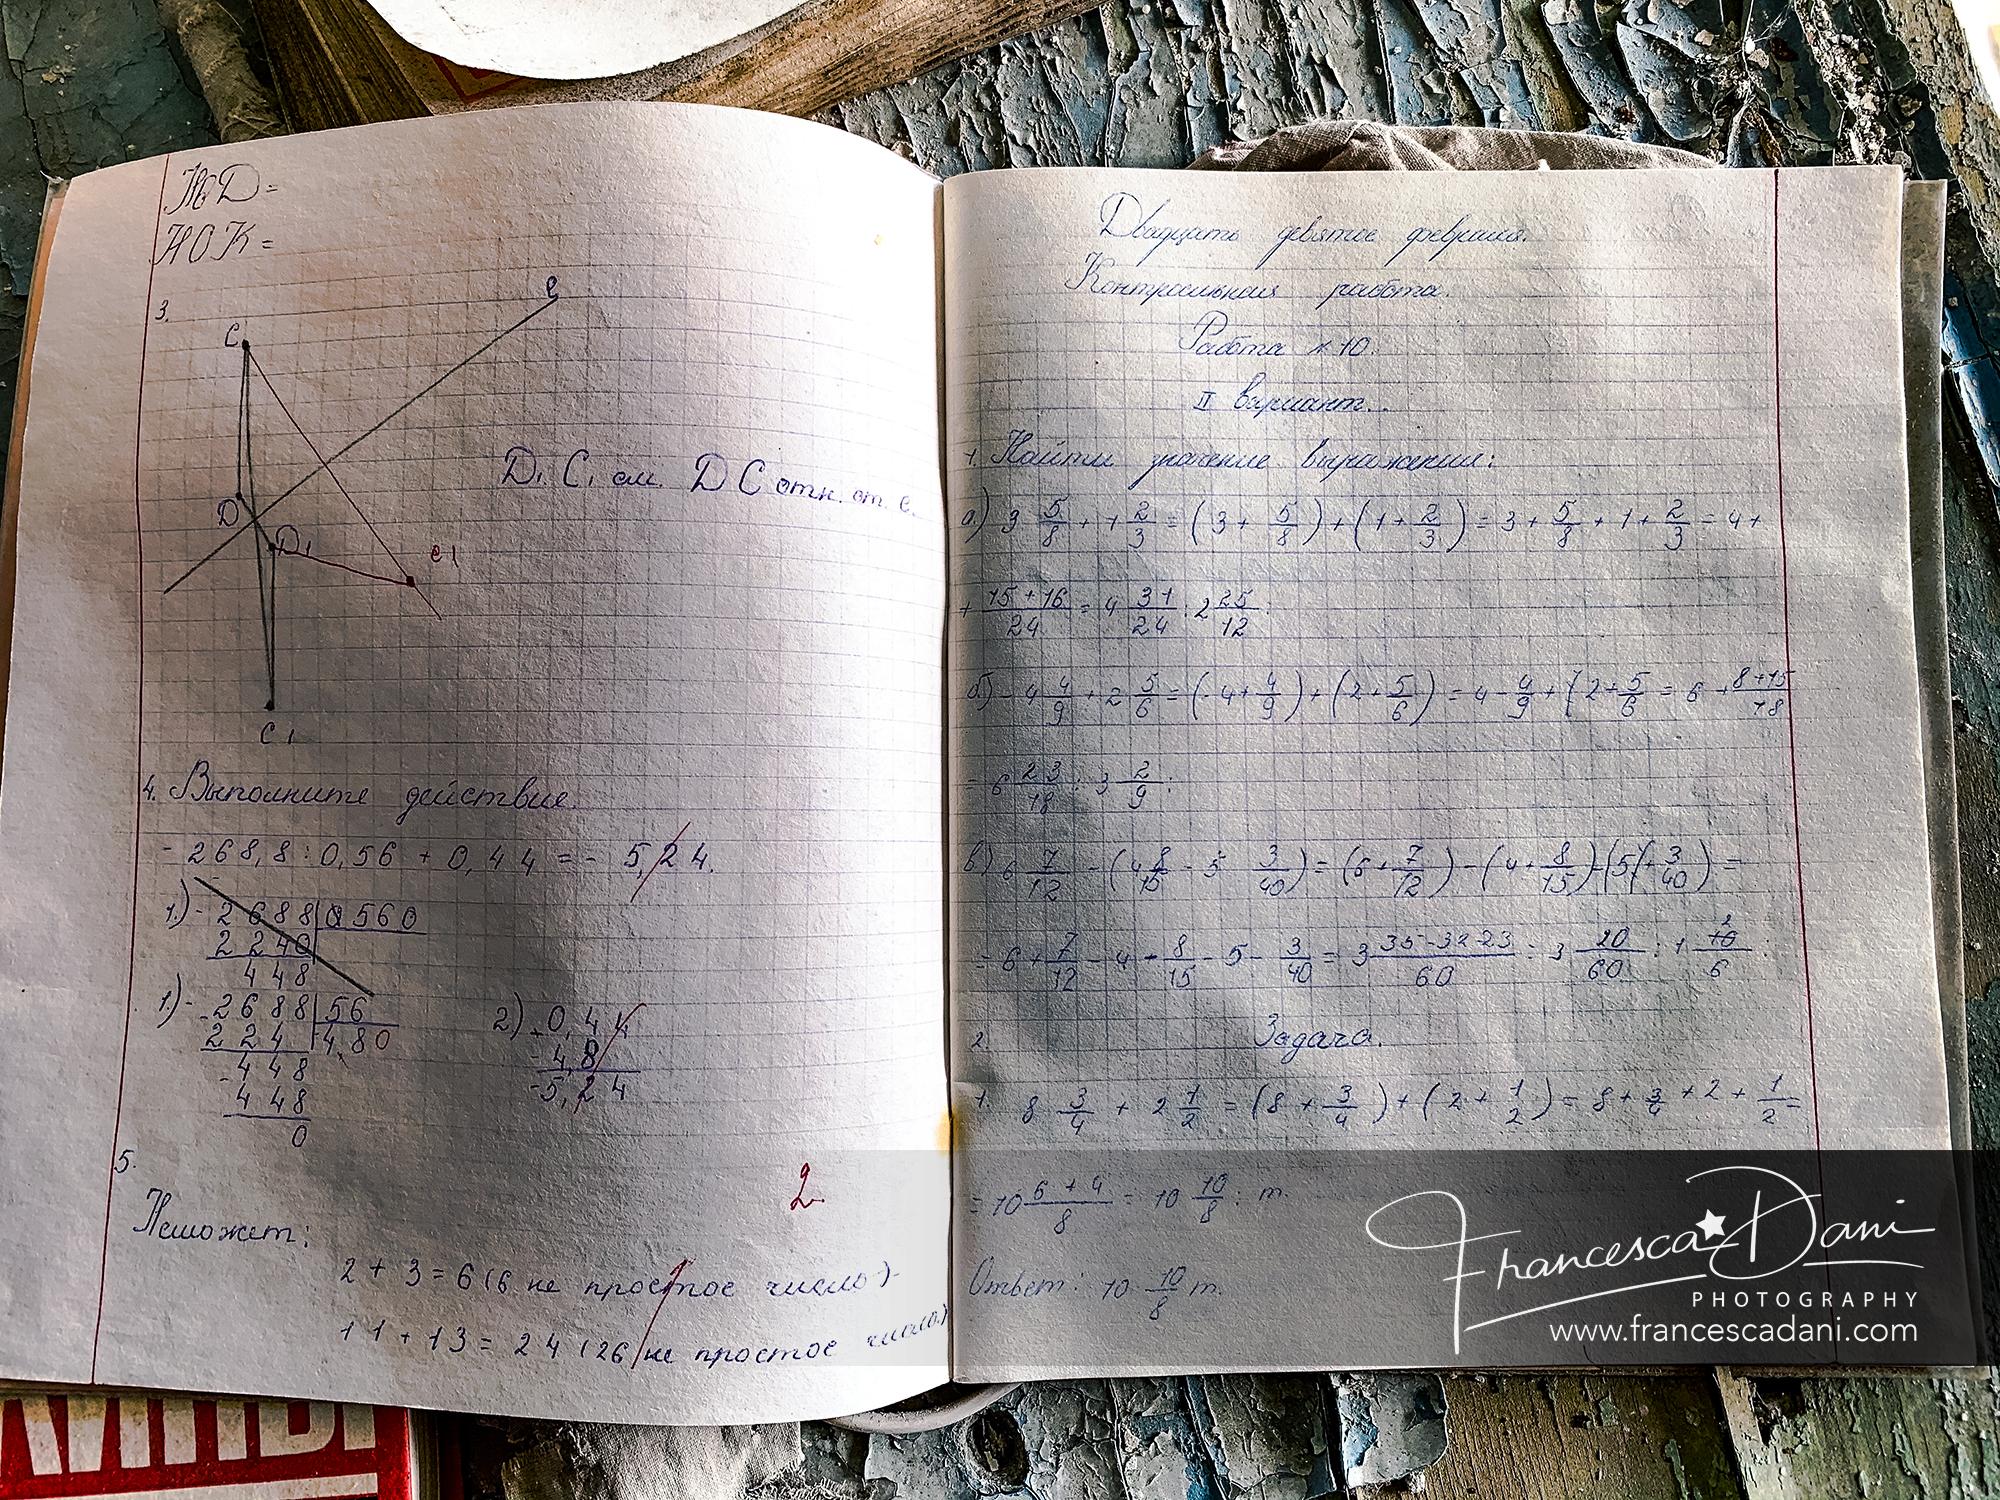 НОД =
НОК =
3.
C
e
D
D1
e1
C1
D1 C1 см. DC отн. от. e.
4. Выполните действие.
- 268,8 : 0,56 + 0,44 = - 5,24.
1.) - 2688 0560
2240
448
1) - 2688 56
224 4,80
448
- 448
0
2) 0,44
- 4,8
- 5,24
5.
Неможет;
2 + 3 = 6 (6 не простое число)
11 + 13 = 24 (26 не простое число)
2.
Двадцать девятое февраля.
Контрольная работа.
Работа № 10.
II вариант.
1. Найти значение выражения:
а.) 3 5/8 + 1 2/3 = (3 + 5/8) + (1 + 2/3) = 3 + 5/8 + 1 + 2/3 = 4 +
+ 15 + 16/24 = 4 31/24 : 2 25/12
б) - 4 4/9 + 2 5/6 = (- 4 + 4/9) + (2 + 5/6) = 4 - 4/9 + (2 + 5/6 = 6 + 8 + 15/18
= 6 23/18 : 3 2/9 :
в) 6 7/12 - (4 8/15 - 5 3/40) = (6 + 7/12) - (4 + 8/15) - (5 + 3/40) =
= 6 + 7/12 - 4 + 8/15 - 5 - 3/40 = 3 35 - 32 - 23/60 = 3 20/60 : 1 10/6 :
2. Задача.
1. 8 3/4 + 2 1/2 = (8 + 3/4) + (2 + 1/2) = 8 + 3/4 + 2 + 1/2 =
= 10 6 + 4/8 = 10 10/8 : т.
Ответ: 10 10/8 т.
Francesca Dani
PHOTOGRAPHY
www.francescadani.com